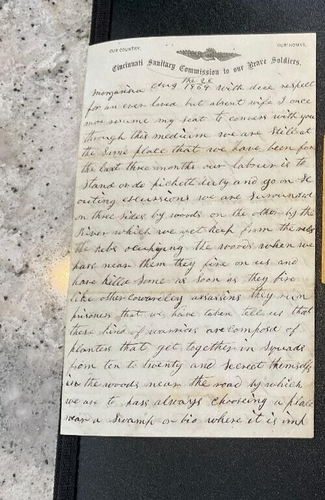 OUR COUNTRY. OUR HOMES.
Cincinnati Sanitary Commission to our Brave Soldiers.
Morganzia Aug the 28 1864 With dew respect
for an ever loved but absent wife I once
more resume my seat to convers with you
through this medium we are still at
the same place that we have been for
the last three months our labour is to
Stand or do pickett duty and go on sc
outing excursions we are surrounded
on three sides by woods on the other by the
River which we get heap from the rebs
the rebs ocupying the woods when we
pass near them they fire on us and
have killed some as soon as they fire
like other cowardley assassins they run
prisoners that we have taken tell us that
these kind of warriors are compose of
planters that get together in squads
from ten to twenty and secreet themselfs
in the woods near the road by which
we are to pass always choosing a place
near a swamp or bio where it is imp